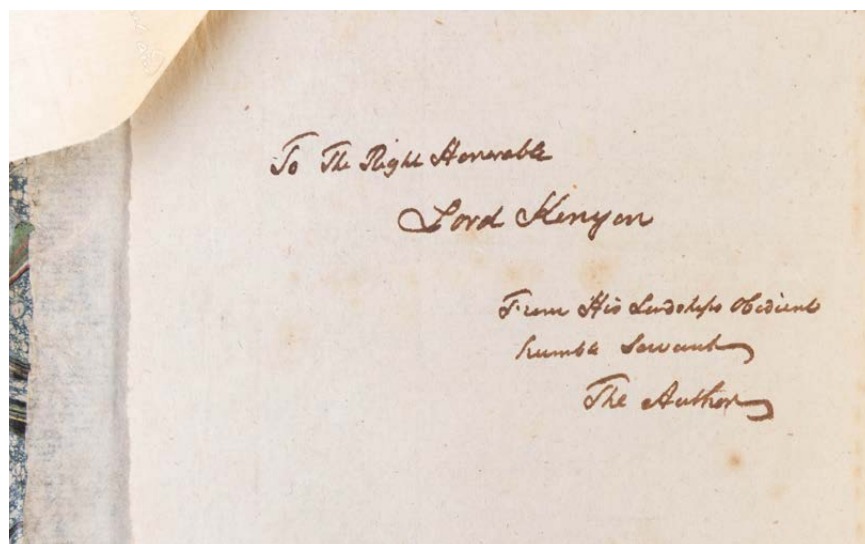 To The Right Honorable
Lord Kenyon
From His Lordships Obedient
humble Servant
The Author